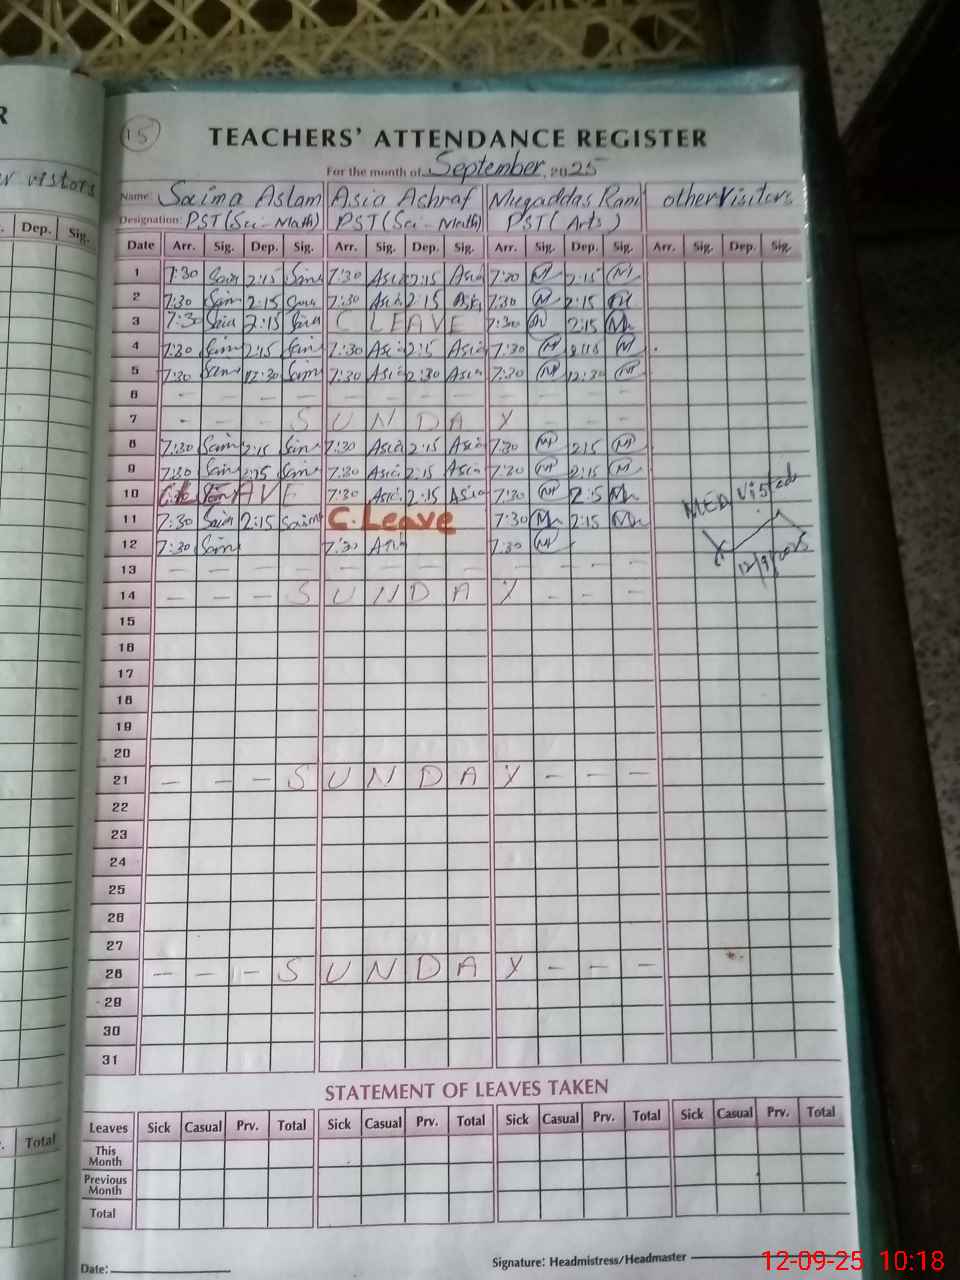 R
er vistors
Dep. Sig.
15
TEACHERS' ATTENDANCE REGISTER
For the month of September, 2025
Name: Saima Aslam Asia Achraf Muqaddas Rani other Visitors
Designation: PST (Sci-Math) PST (Sci-Math) PST (Arts)
Date Arr. Sig. Dep. Sig. Arr. Sig. Dep. Sig. Arr. Sig. Dep. Sig. Arr. Sig. Dep. Sig.
1 7:30 Saim 2:15 Saim 7:30 Asia 2:15 Asia 7:30 M 2:15 M
2 7:30 Saim 2:15 7:30 Asia 2:15 Asia 7:30 M 2:15 M
3 7:30 Saia 2:15 C LEAVE 7:30 M 2:15 M
4 7:30 Saim 2:15 Saim 7:30 Asia 2:15 Asia 7:30 M 2:15 M
5 7:30 Saim 12:30 Saim 7:30 Asia 2:30 Asia 7:30 M 12:30 M
6 - - - - - - - - - - - -
7 - - - S U N D A Y - - -
8 7:30 Saim 2:15 Saim 7:30 Asia 2:15 Asia 7:30 M 2:15 M
9 7:30 Saim 2:15 Saim 7:30 Asia 2:15 Asia 7:30 M 2:15 M
10 AVE 7:30 Asia 2:15 Asia 7:30 M 2:5 M
11 7:30 Saim 2:15 Saim C. Leave 7:30 M 2:15 M
12 7:30 Saim 7:30 Asia 7:30 M
MEA Visited
12/9/2025
13 - - - - - - - - - - - -
14 - - - S U N D A Y - - -
15
16
17
18
19
20
21 - - - S U N D A Y - - -
22
23
24
25
26
27
28 - - - S U N D A Y - - -
29
30
31
STATEMENT OF LEAVES TAKEN
Leaves Sick Casual Prv. Total Sick Casual Prv. Total Sick Casual Prv. Total Sick Casual Prv. Total
This Month
Previous Month
Total
Total
Date:
Signature: Headmistress/Headmaster
12-09-25 10:18